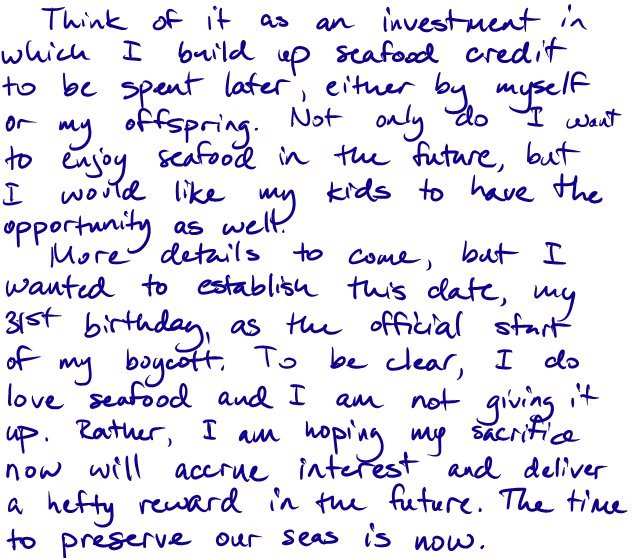 Think of it as an investment in
which I build up seafood credit
to be spent later, either by myself
or my offspring. Not only do I want
to enjoy seafood in the future, but
I would like my kids to have the
opportunity as well.
More details to come, but I
wanted to establish this date, my
31st birthday, as the official start
of my boycott. To be clear, I do
love seafood and I am not giving it
up. Rather, I am hoping my sacrifice
now will accrue interest and deliver
a hefty reward in the future. The time
to preserve our seas is now.